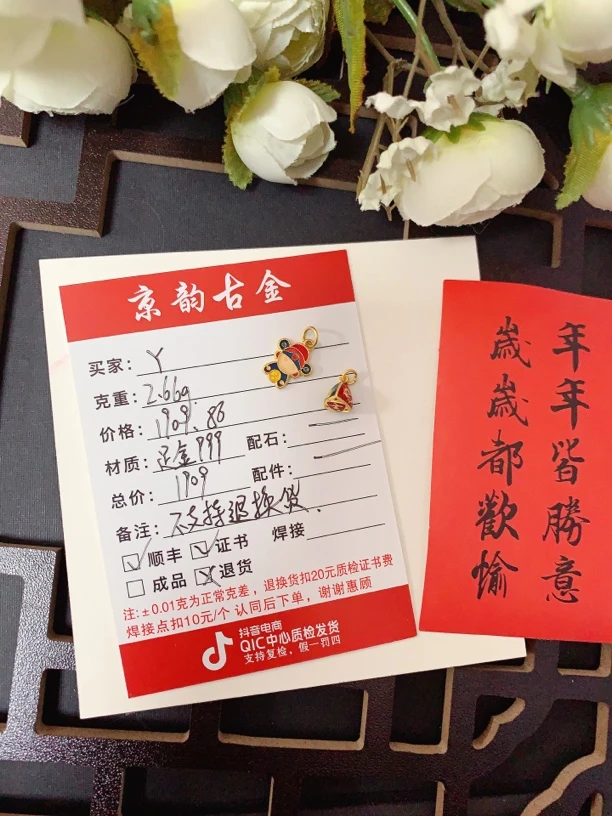 京韵古金
买家: Y
克重: 2.66g
价格: 1909.86
材质: 足金999 配石:
总价: 1909 配件:
备注: 不支持退换货.
顺丰 证书 焊接
成品 退货
注:±0.01克为正常克差，退换货扣20元质检证书费
焊接点扣10元/个 认同后下单，谢谢惠顾
抖音电商
QIC中心质检发货
支持复检，假一罚四
年年皆勝意
歲歲都歡愉